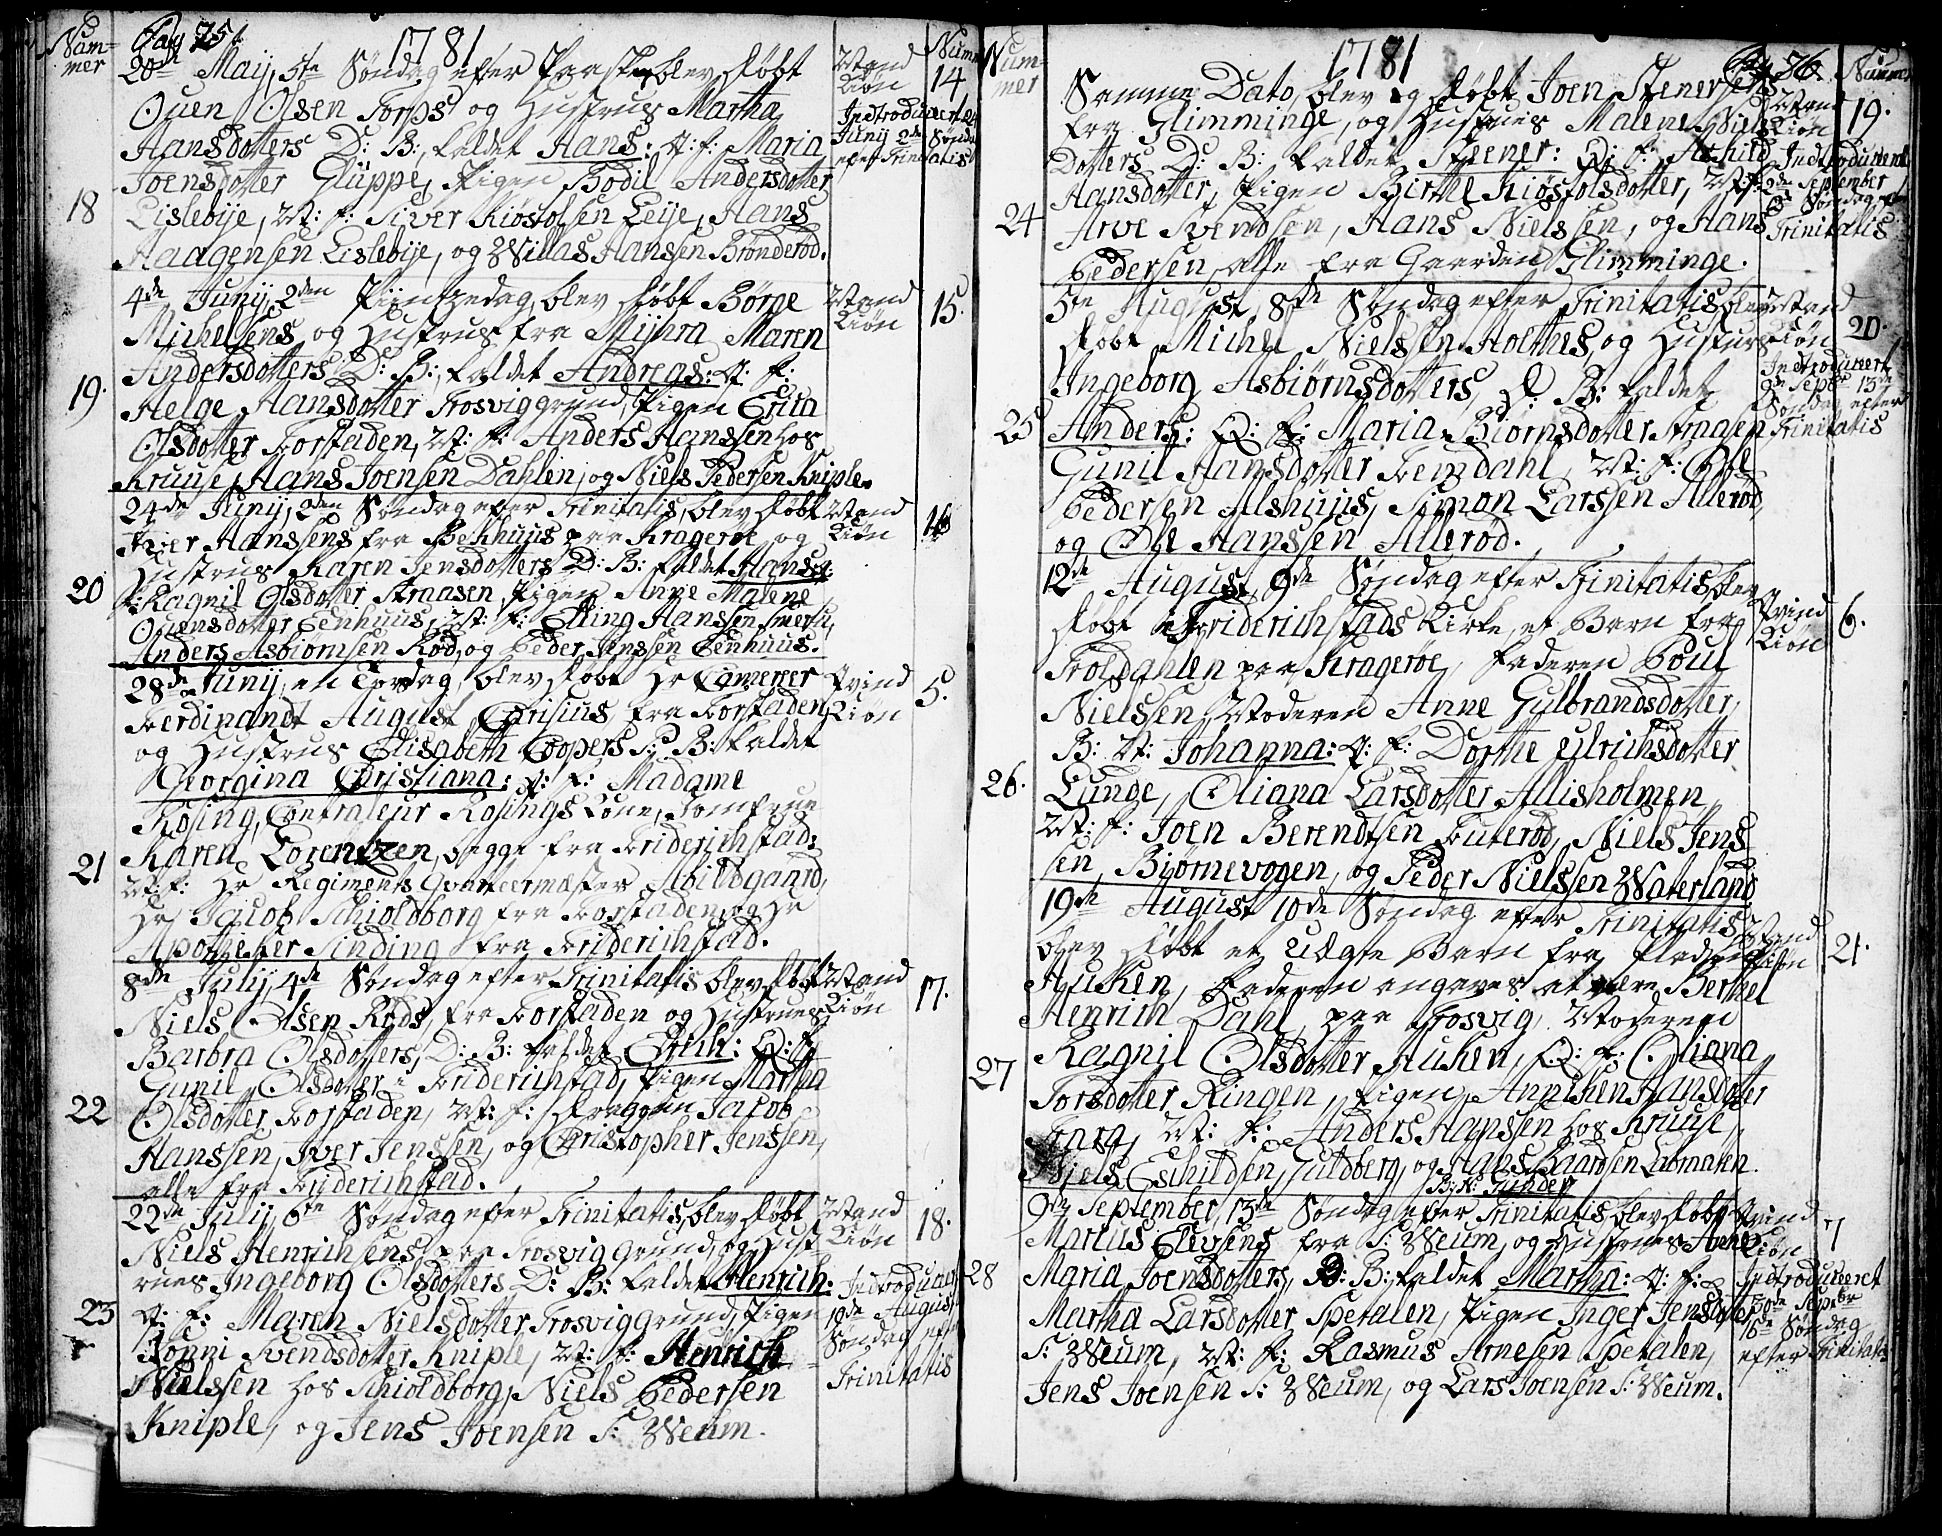 Num-
mer
Pag 35.
1781
Numm
20de Maij, 5te Søndag efter Paaske, blev døbt
Ouen Olsen Torps og Hustrus Martha
Hansdotters D: B: kaldet Hans: Q: f: Maria
Joensdotter Gluppe, Pigen Bodil Andersdotter
Lislebije, M: f: Siver Kiøstolsen Leije, Hans
Haagensen Lislebije, og Willas Hansen Brønderød.
18
Mand
Kiøn
14
Introduceret
Junij 2de Sønda
efter Trinitatis
4de Junij, 2den Pijntzedag, blev døbt Børge
Michelsens og Hustrus fra Mijhra Maren
Andersdotters D: B: kaldet Andreas: Q: f:
Helge Hansdotter Trosviggrund, Pigen Erica
Olsdotter Forstaden, M: f: Anders Hanssen hos
Kruuse, Hans Joensen Dahlen, og Niels Pedersen Kniple.
19.
Mand
Kiøn
15.
24de Junij, 2den Søndag efter Trinitatis, blev døbt
Iver Hanssens fra Bekhuus paa Kragerøe og
Hustrus Karen Jensdotters D: B: kaldet Hans: Q:
f: Ragnil Olsdotter Straasen, Pigen Anne Malene
Ouensdotter Eenhuus, M: f: Elling Hanssen
Anders Asbiørnsen Rød, og Peder Jenssen Eenhuus.
20
Mand
Kiøn
16
28de Junij, en Torsdag, blev døbt Hr Camerer
Ferdinandt August Crisius fra Forstaden
og Hustrus Elisabeth Coopers D: B: kaldet
Georgina Christiana: Q: f: Madame
Rosing, Controleur Rosings Kone, Jomfrue
Karen Lorentzen, begge fra Friderichstad:
M: f: Hr Regiments Qvarteermester Abildgaard,
Hr Jacob Schioldborg fra Forstaden, og Hr
Apotheker Sinding fra Friderichstad.
21
Qvind
Kiøn
5.
8de Julij, 4de Søndag efter Trinitatis, blev døbt
Niels Olsen Røds, fra Forstaden og Hustrues
Barbra Olsdotters, D: B: kaldet Erich: Q: f:
Gunil Olsdotter i Friderichstad, Pigen Martha
Olsdotter Forstaden, M: f: Dreggen Jacob
Hanssen, Iver Jenssen, og Christopher Jenssen,
alle fra Friderichstad.
22
Mand
Kiøn
17.
22de Julij, 6te Søndag efter Trinitatis, blev døbt
Niels Henrichsens paa Trosviggrund, og Hust-
rues Ingeborg Olsdotters D: B: kaldet Henrich:
Q: f: Maren Nielsdotter Trosviggrund, Pigen
Rønni Svendsdotter Kniple, M: f: Henrich
Nielssen hos Schioldborg, Niels Pedersen
Kniple, og Jens Joensen S: Weum.
23
Mand
Kiøn
18.
Introduceret
19de August
Søndag efter
Trinitatis
Num-
mer
1781
Pag 36.
Numm
Samme Dato, blev og døbt Joen Steners
fra Glimminge, og Hustrues Malene Niels
Dotters D: B: kaldet Steener: Q: f: Aschild
Hansdotter, Pigen Birthe Kiøstolsdotter, M: f:
Arve Svendsen, Hans Nielssen, og Hans
Pedersen, alle fra Gaarden Glimminge.
24
Mand
Kiøn
19.
Introduceret
2de September
Søndag efter
Trinitatis
5te August, 8de Søndag efter Trinitatis, blev
døbt Michel Nielssen Holthes, og Hustrus
Ingeborg Asbiørnsdotters, D: B: kaldet
Anders: Q: f: Maria Biørnsdotter Straasen
Gunil Hansdotter Femdahl, M: f: Ole
Pedersen Alshuus, Simon Larssen Allerød,
og Ole Hanssen Allerød.
25
Mand
Kiøn
20.
Introduceret
9de Septbr 13de
Søndag efter
Trinitatis
12de August, 9de Søndag efter Trinitatis, blev
døbt i Friderichstads Kirke, et Barn fra
Troldahlen paa Kragerøe, Faderen Poul
Nielsen, Moderen Anne Gulbrandsdotter,
B: N: Johanna: Q: f: Dorthe Ulrichsdotter
Lunde, Oliana Larsdotter Allisholmen,
M: f: Joen Berendtsen Buterød, Niels Jens
sen, Biørnevogen, og Peder Nielssen Waterland
26.
Qvind
Kiøn
6.
19de August 10de Søndag efter Trinitatis
blev døbt et Uægte Barn fra Pladsen
Huken, Faderen angaves at være Berthel
Henrich Dahl, paa Trosvig, Moderen
Ragnil Olsdotter Huken, Q: f: Oliana
Torsdotter Ringen, Pigen Anniken Hansdotter
Fara, M: f: Anders Hanssen hos Kruuse,
Niels Eschildsen, Guldberg, og Hans Baardsen Labmaten.
B: N: Gunder
27
Mand
Kiøn
21.
9de September, 13de Søndag efter Trinitatis, blev døbt
Marcus Elevsens fra S: Weum, og Hustrues Anne
Maria Joensdotters, D: B: kaldet Martha: Q: f:
Martha Larsdotter Spetalen, Pigen Inger Jensdotter
S: Weum, M: f: Rasmus Arnesen Spetalen,
Jens Joensen S: Weum, og Lars Joensen S: Weum.
28
Qvind
Kiøn
7
Introduceret
30de Septbr
16de Søndag
efter Trinitatis